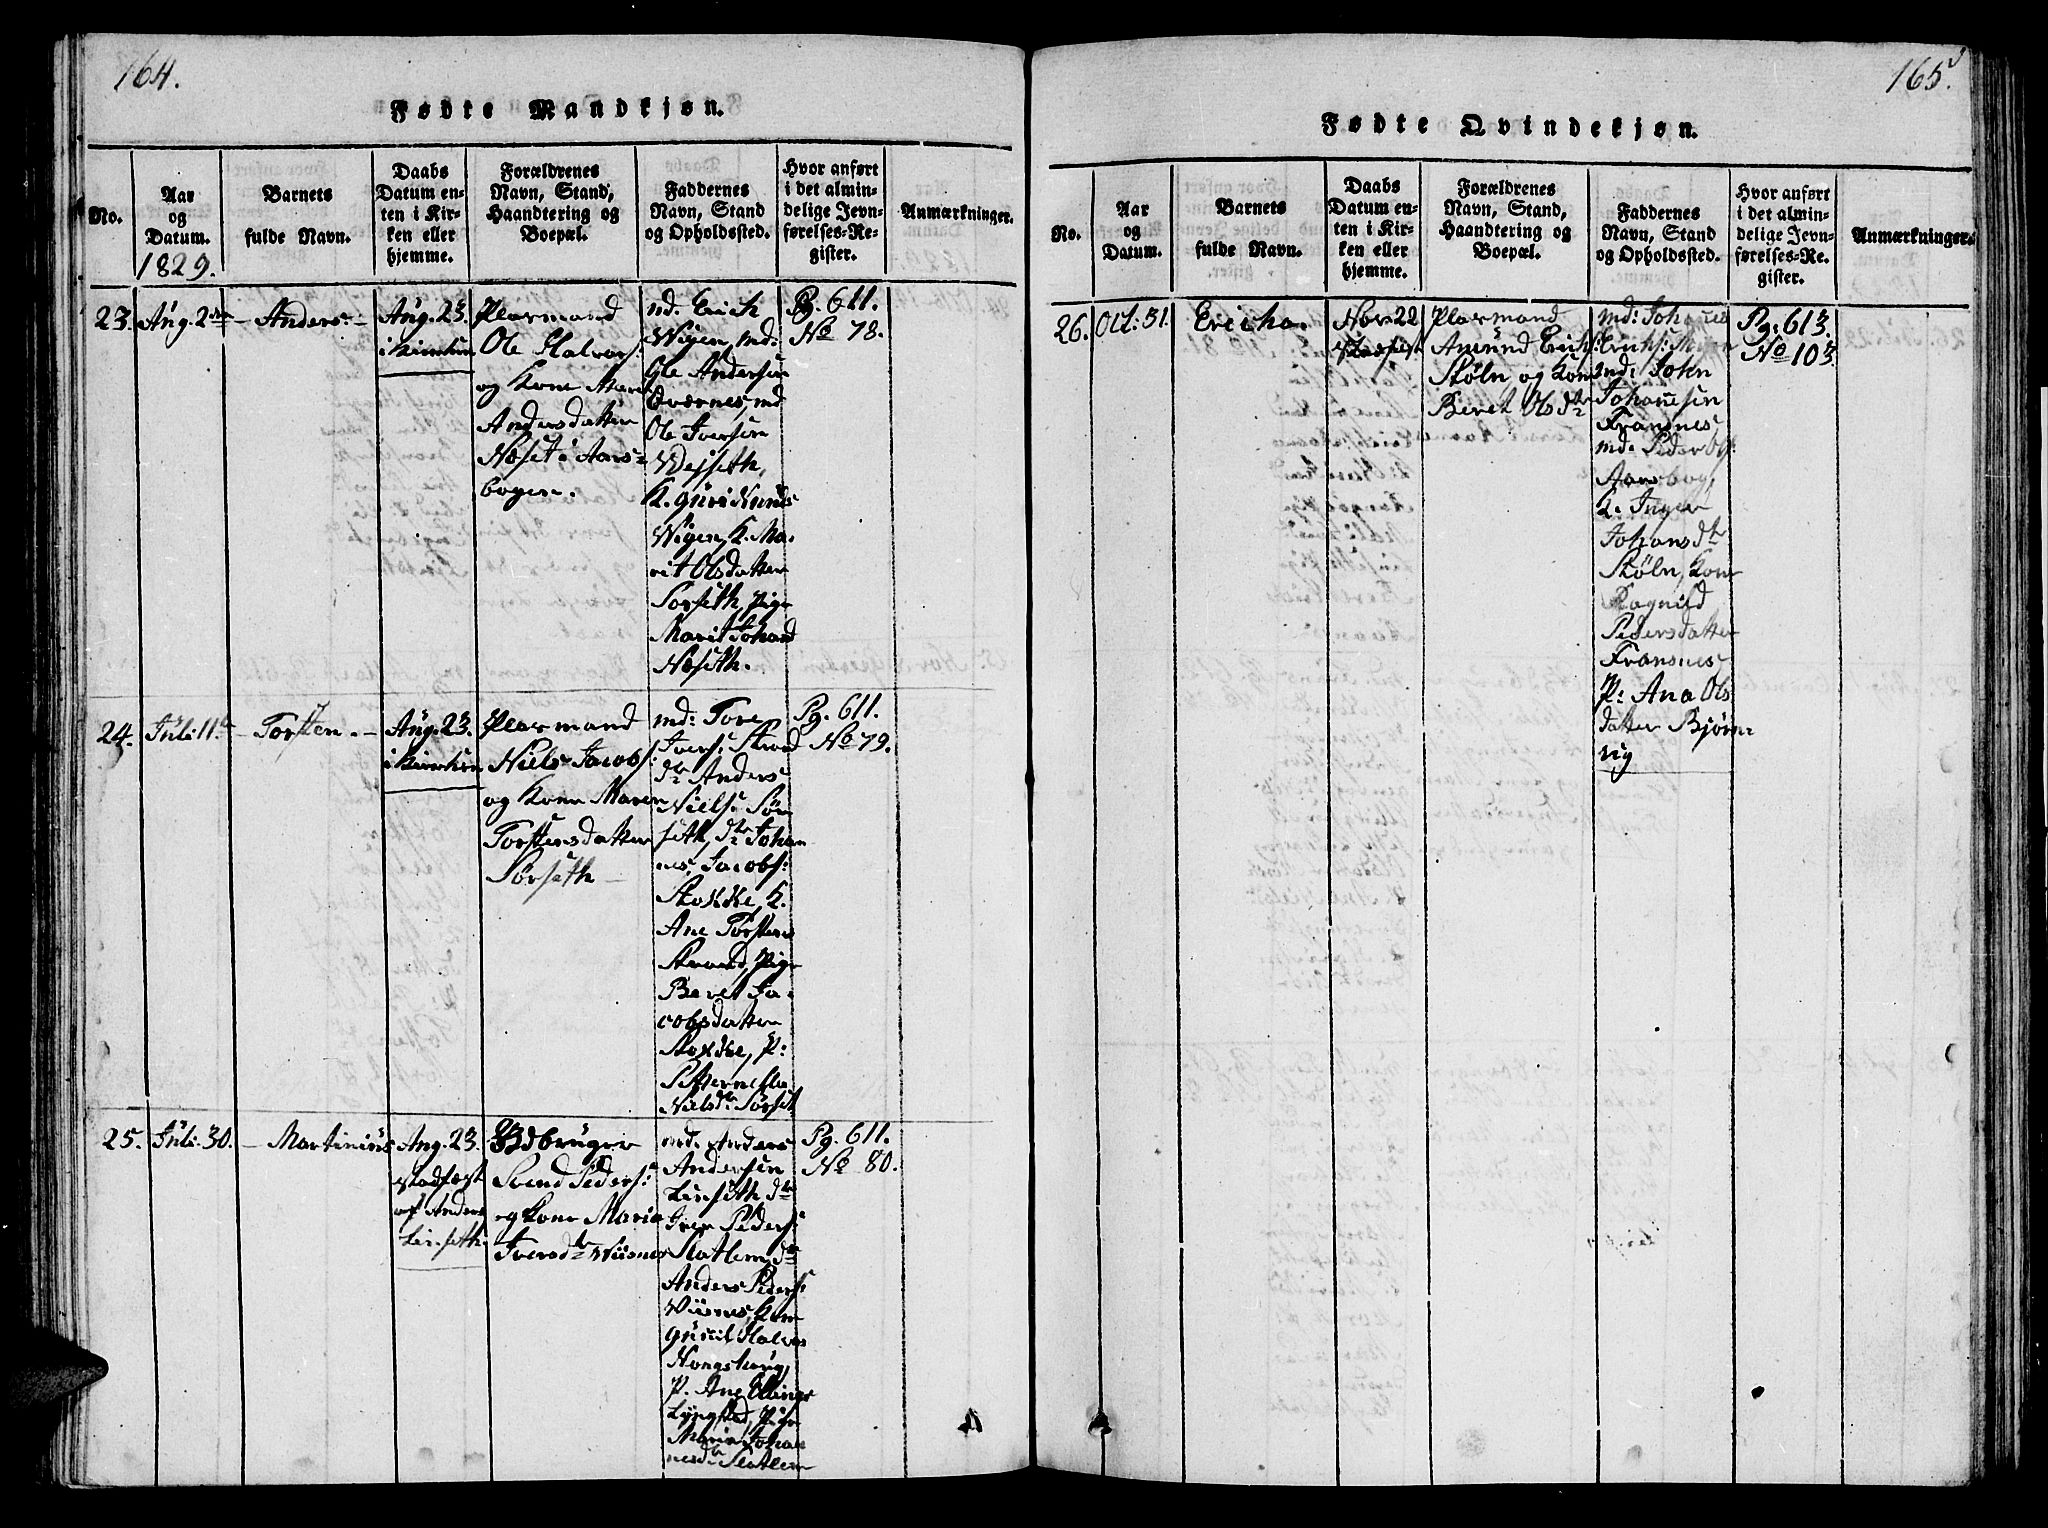 164.
Fødte Mandkjøn.
No.
Aar
og
Datum.
1829.
Barnets
fulde Navn.
Daabs
Datum en-
ten i Kir-
ken eller
hjemme.
Forældrenes
Navn, Stand,
Haandtering og
Boepæl.
Faddernes
Navn, Stand
og Opholdssted.
Hvor anført
i det almin-
delige Jevn-
førelses-Re-
gister.
Anmærkninger.
23.
Aug. 2den
Anders
Aug. 23.
i Kirken
Plasmand
Ole Halvors:
og Kone Maren
Andersdatter
Næset i Aars-
bogen.
md. Erich
Wigen, md:
Ole Andersen
Qværnes md
Ole Iversen
Wejseth,
K. Guri Knuds
Wigen, K. Ma-
rit Olsdatter
Sorseth, Pige
Marit Johans
Næseth.
Pg. 611.
No 78.
24.
Juli 11te
Torsten.
Aug. 23.
i Kirken
Plasmand
Niels Jacobs:
og Kone Maren
Torstensdatter
Sørseth
md: Tore
Ivers: Strand
dr Anders
Niels: Sør-
seth, dr Johan
nes Jacobs:
Stokke, K.
Ane Torstens
Strand, Pige
Beret Ja-
cobsdatter
Stokke, P:
Petternella
Nielsdr Sørset
Pg. 611.
No 79.
25.
Juli. 30.
Martinius
Aug. 23.
stadfæst
af Anders
Lerseth.
Ødbruger
Svend Peders:
og Kone Maria
Iversdr Wiisnes
md. Anders
Andersen
Lerseth dr
Iver Peders:
Slatlem, dr
Anders Peders:
Wiisnes, Kone
Guruil Halvors
Hougshoug,
P. Ane Ellings
Lyngstad, Pige
Marit Johan
nesdr Slatlem
Pg. 611.
No 80.
165.
Fødte Qvindekjøn.
No.
Aar
og
Datum.
Barnets
fulde Navn.
Daabs
Datum en-
ten i Kir-
ken eller
hjemme.
Forældrenes
Navn, Stand,
Haandtering og
Boepæl.
Faddernes
Navn, Stand
og Opholdssted.
Hvor anført
i det almin-
delige Jevn-
førelses-Re-
gister.
Anmærkninger.
26.
Oct: 31.
Ericha.
Nov 22
stadfæst
Plasmand
Amund Erichs:
Støln og Kone
Beret Olsdtr
md: Johannes
Erichs:
md: John
Johannesen
Fransnes
md: Peder
Aarsbog,
K. Inger
Johansdtr
Støln, Kone
Ragnild
Pedersdatter
Fransnes
P: Ana Ols
datter Bjørn-
vig
Pg: 613.
No 103.